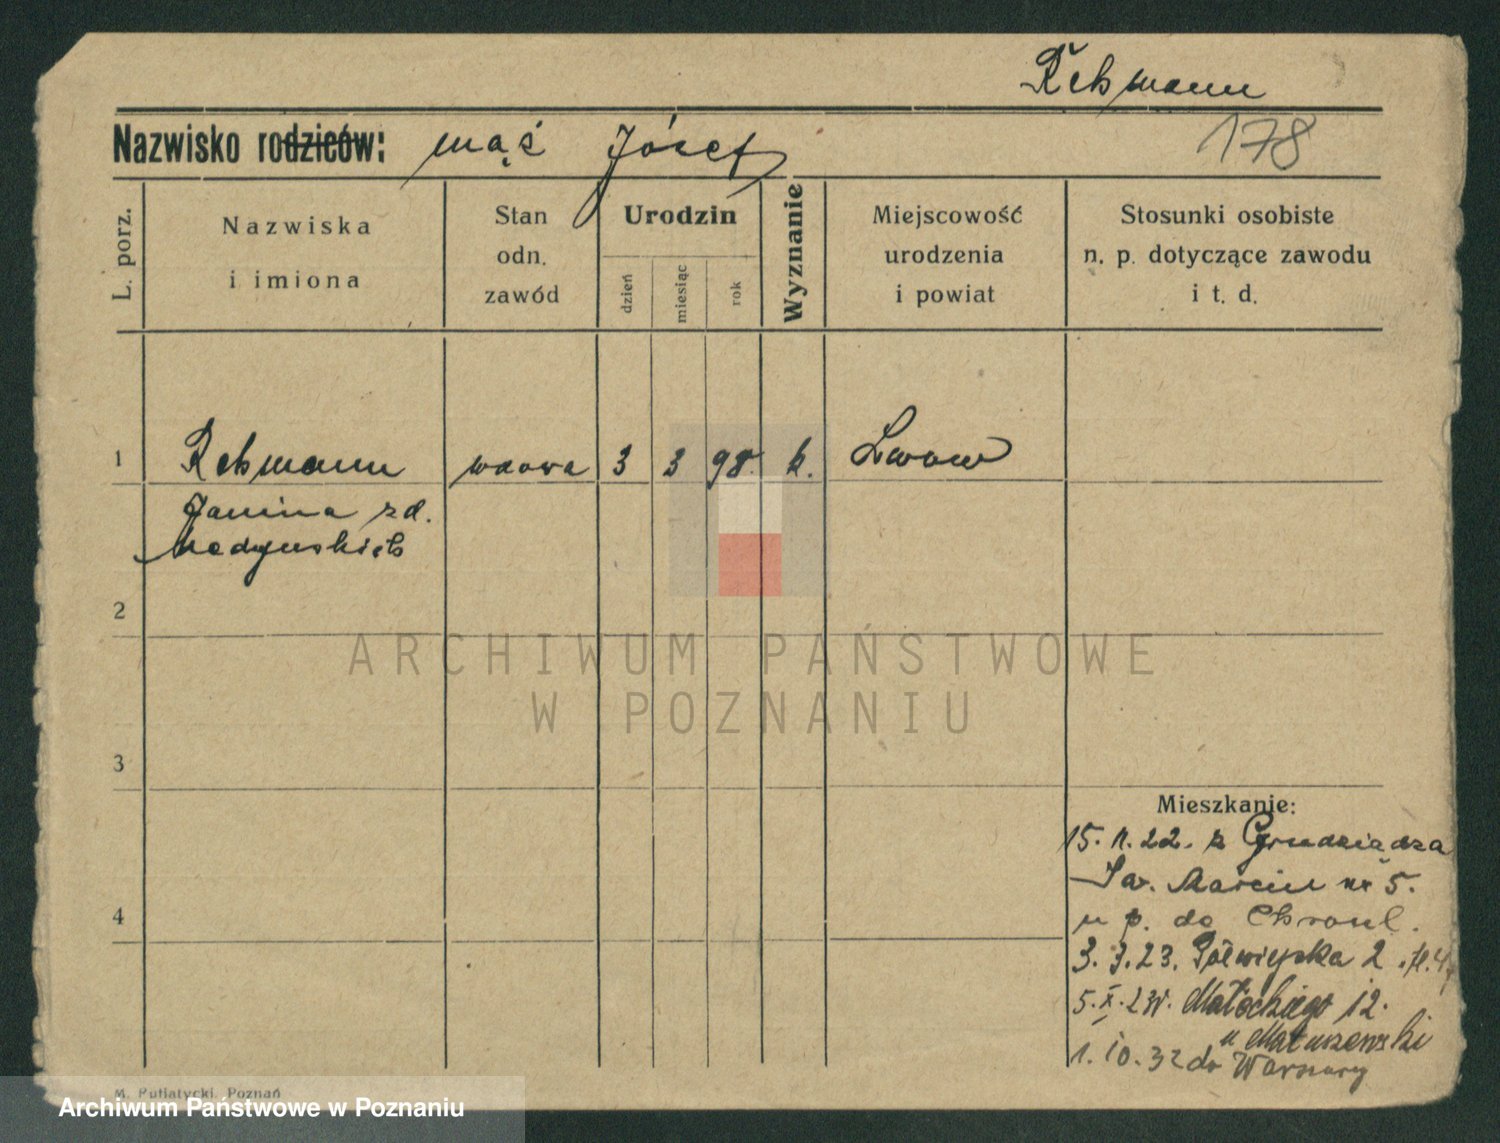 Rehmann
Nazwisko rodziców: mąż Józef
178
L. porz.
Nazwiska
i imiona
Stan
odn.
zawód
Urodzin
dzień
miesiąc
rok
Wyznanie
Miejscowość
urodzenia
i powiat
Stosunki osobiste
n. p. dotyczące zawodu
i t. d.
1 Rehmann wdowa 3 3 98. k. Lwow
Janina zd.
2
3
4
Mieszkanie:
15. 11. 22. z Grudziądza
Św. Marcin nr 5.
u p. de
3. 3. 23. Półwiejska 2
5. X. Małeckiego 12.
u Matuszewski
1. 10. 32 do Warszawy
M. Putiatycki, Poznań
ARCHIWUM PAŃSTWOWE
W POZNANIU
Archiwum Państwowe w Poznaniu